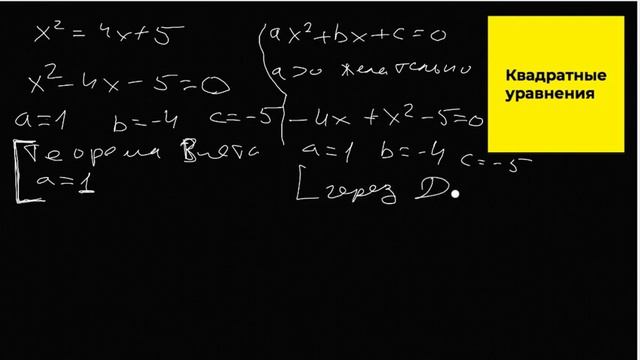 x² = 4x+5
x²-4x-5=0
a=1 b=-4 c=-5
Теорема Виета
a=1
ax²+bx+c=0
a>0 желательно
-4x+x²-5=0
a=1 b=-4 c=-5
через D
Квадратные
уравнения